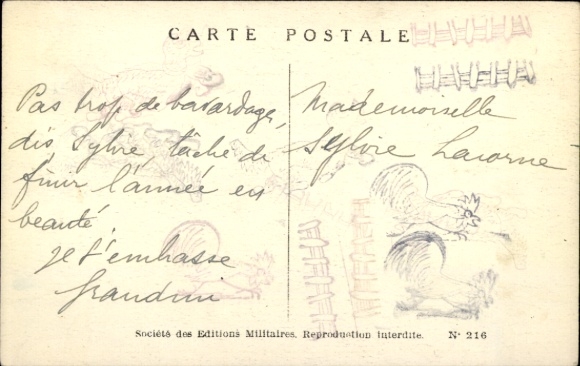 CARTE POSTALE
Pas trop de bavardages,
dis Sylvie, tâche de
finir l'année en
beauté.
Je t'embrasse
Mademoiselle
Sylvie Lacorne
Société des Editions Militaires. Reproduction interdite. N° 216